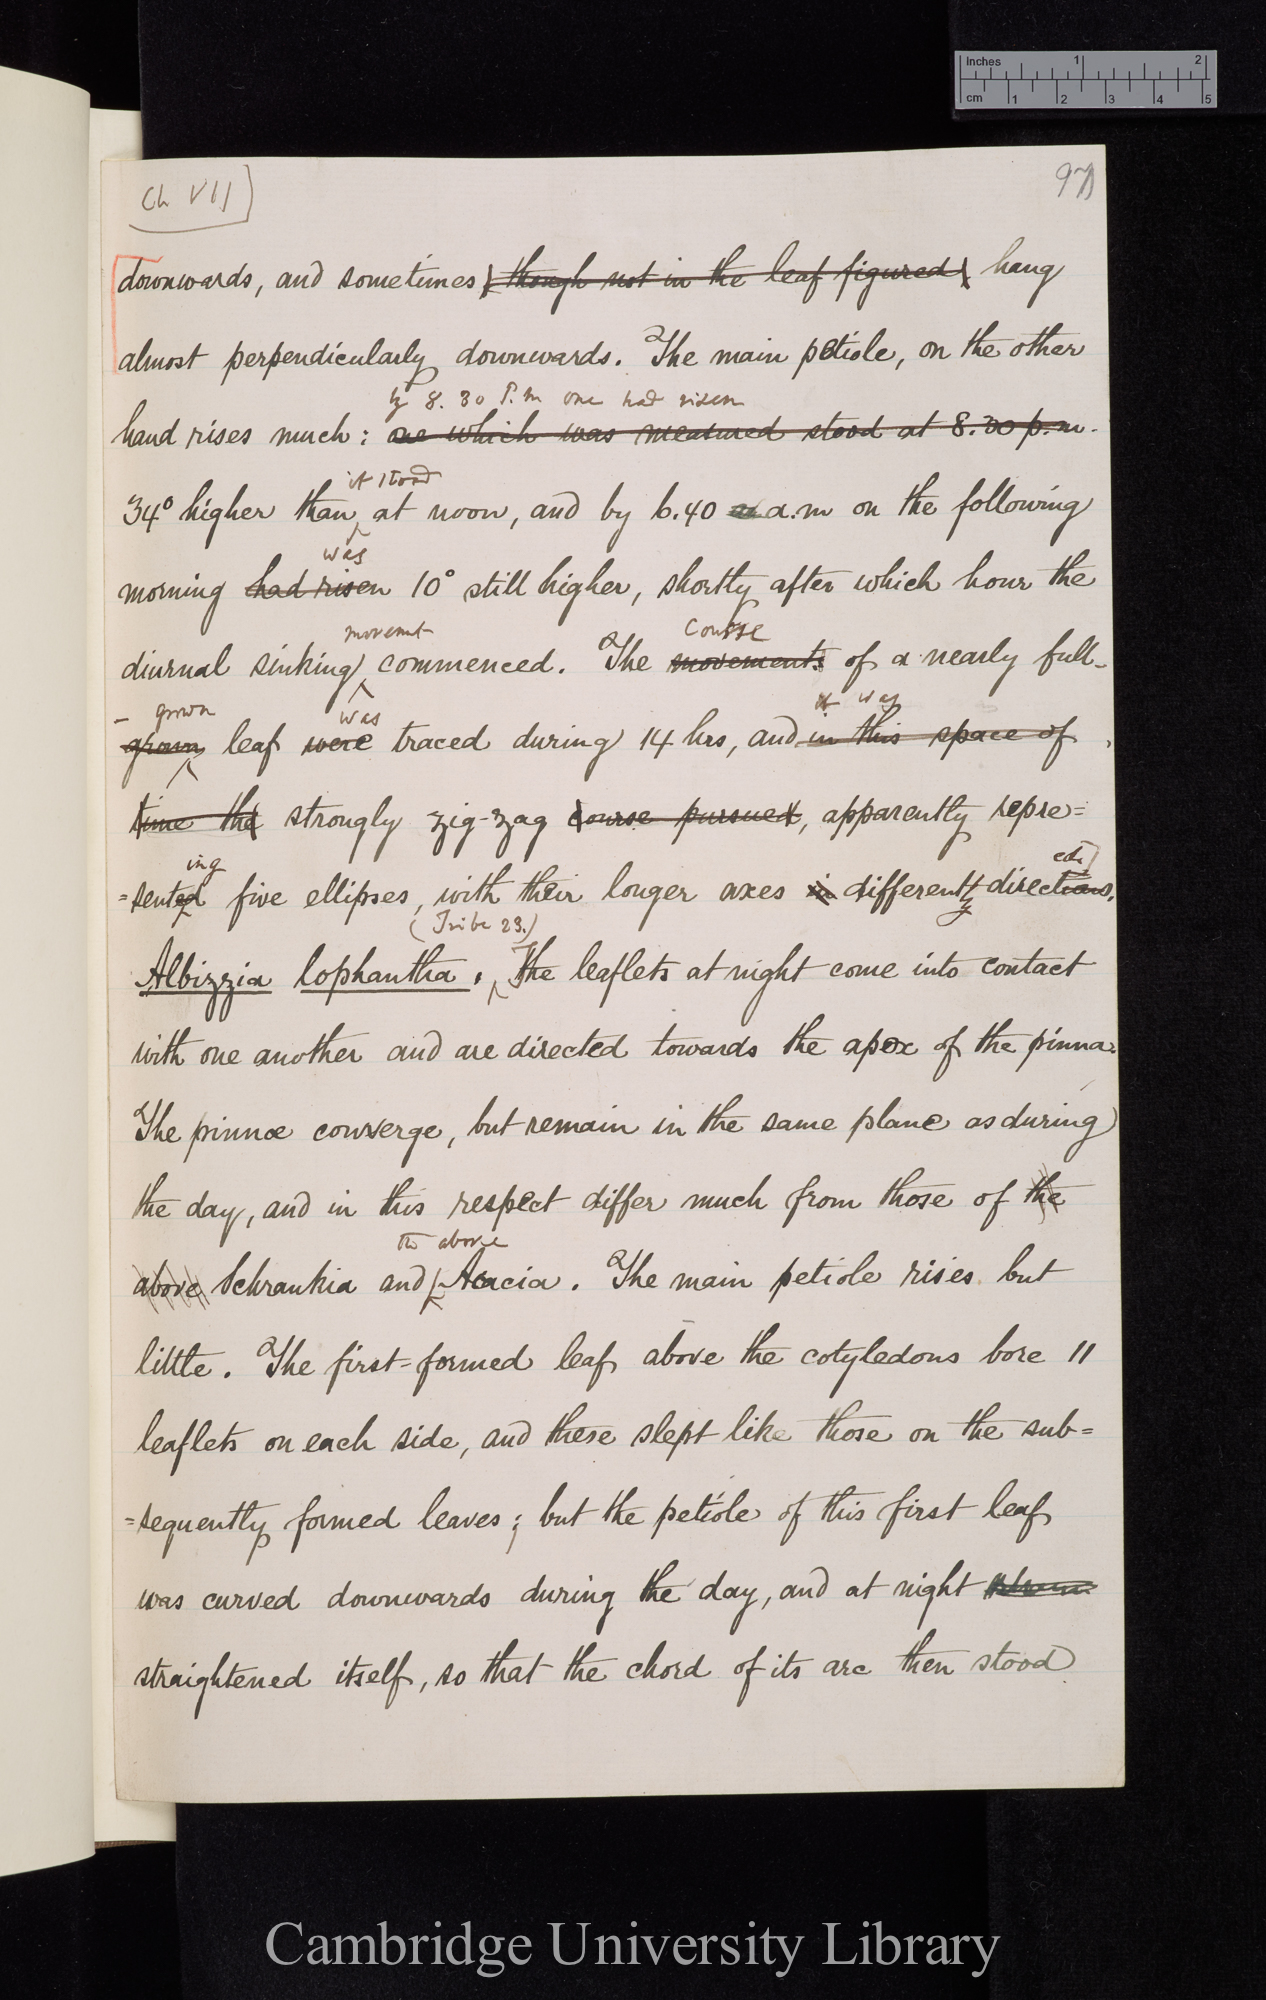 Inches 1 2
cm 1 2 3 4 5
Ch VII]
downwards, and sometimes (though not in the leaf figured) hang
almost perpendicularly downwards. The main petiole, on the other
by 8.30 P.m one had risen
hand rises much: one which was measured stood at 8.30 p.m.
it stood
34° higher than at noon, and by 6.40 a.m on the following
was
morning had risen 10° still higher, shortly after which hour the
movement course
diurnal sinking commenced. The movements of a nearly full-
-grown was it was
grown leaf were traced during 14 hrs, and in this space of
time the strongly zig-zag course pursued, apparently repre=
ing ed
=sented five ellipses, with their longer axes in differently directions.
(Tribe 23.)
Albizzia lophantha. The leaflets at night come into contact
with one another and are directed towards the apex of the pinna.
The pinnæ converge, but remain in the same plane as during
the day, and in this respect differ much from those of the
the above
above Schrankia and Acacia. The main petiole rises but
little. The first-formed leaf above the cotyledons bore 11
leaflets on each side, and these slept like those on the sub=
=sequently formed leaves; but the petiole of this first leaf
was curved downwards during the day, and at night
straightened itself, so that the chord of its arc then stood
Cambridge University Library